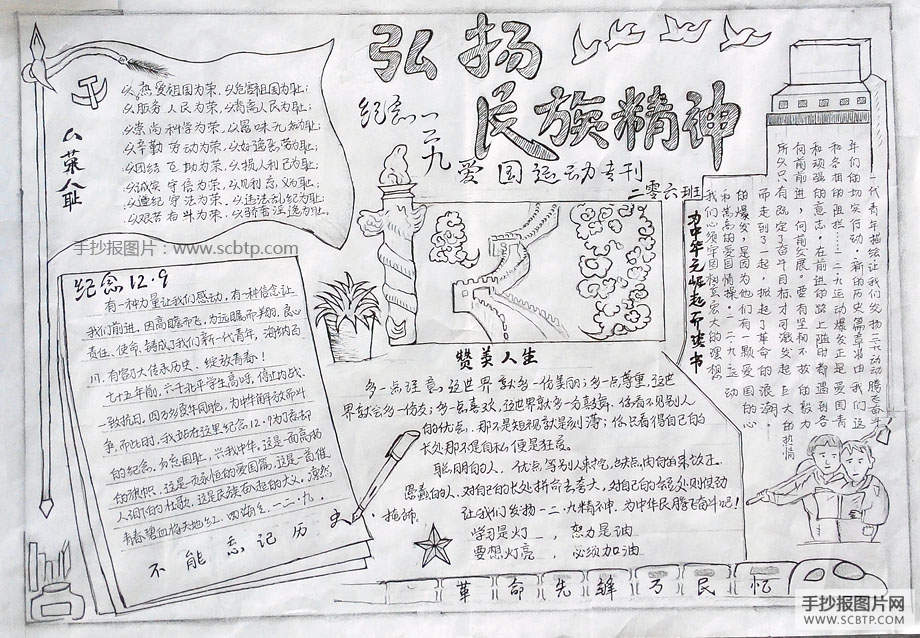 弘扬
民族精神
纪念一二九爱国运动专刊
二零六班
八荣八耻
以热爱祖国为荣,以危害祖国为耻;
以服务人民为荣,以背离人民为耻;
以崇尚科学为荣,以愚昧无知为耻;
以辛勤劳动为荣,以好逸恶劳为耻;
以团结互助为荣,以损人利己为耻;
以诚实守信为荣,以见利忘义为耻;
以遵纪守法为荣,以违法乱纪为耻;
以艰苦奋斗为荣,以骄奢淫逸为耻。
手抄报图片:www.scbtp.com
纪念12.9
有一种力量让我们感动,有一种信念让
我们前进,因高瞻而飞,为远瞩而翔的,良心
责任、使命,铸成了我们新一代青年,海纳百
川,有容乃大传承历史,绽放青春!
七十五年前,六千北平学生高呼,停止内战
一致抗日,因万千受牛同胞,为中华解放而斗
争,而此时,我站在这里纪念12.9为了忘却
的纪念,勿忘国耻,兴我中华,这是一面高扬
的旗帜,这是一页永恒的爱国篇,这是一首催
人泪怕的壮歌,这是民族奋起的大义,凛然
青春碧血将天地红,四海
不能忘记历史
赞美人生
多一点注意,这世界就多一份美丽;多一点尊重,这世
界就会多一份友;多一点喜欢,这世界就多一方鼓舞。你看不见别人
的优点,那不是短视就是刻薄;你只看得自己的
长处那不是自私,便是狂虐。
聪明的人,优点等别人来挖,缺点由自己来改正。
愚蠢的人,对自己的长处拼命去夸大,对自己的
让我们发扬一二·九精神,为中华民腾飞奋斗吧!
学习是灯,努力是油
要想灯亮,必须加油
为中华之崛起而读书
一代青年描绘让我们发扬一二九运动腾飞奋斗
年们的切实行动,新的历史篇章须由我们这
和各祖的阻拦……一二九运动爆发正是爱国青
和顽强的意志,在前进的路上随时都遇到各
向前前进,向前发展。要有坚和不放的毅力
所以只有既定了奋斗目标才可激发起巨大的热情
而走到了一起,掀起了革命的浪潮心
的爆发,是因为他们有一颗爱国的
和高高的爱国情操。一二九运动
我们必须牢固树立宏大的理想
革命先锋 民忆
手抄报图片网
WWW.SCBTP.COM